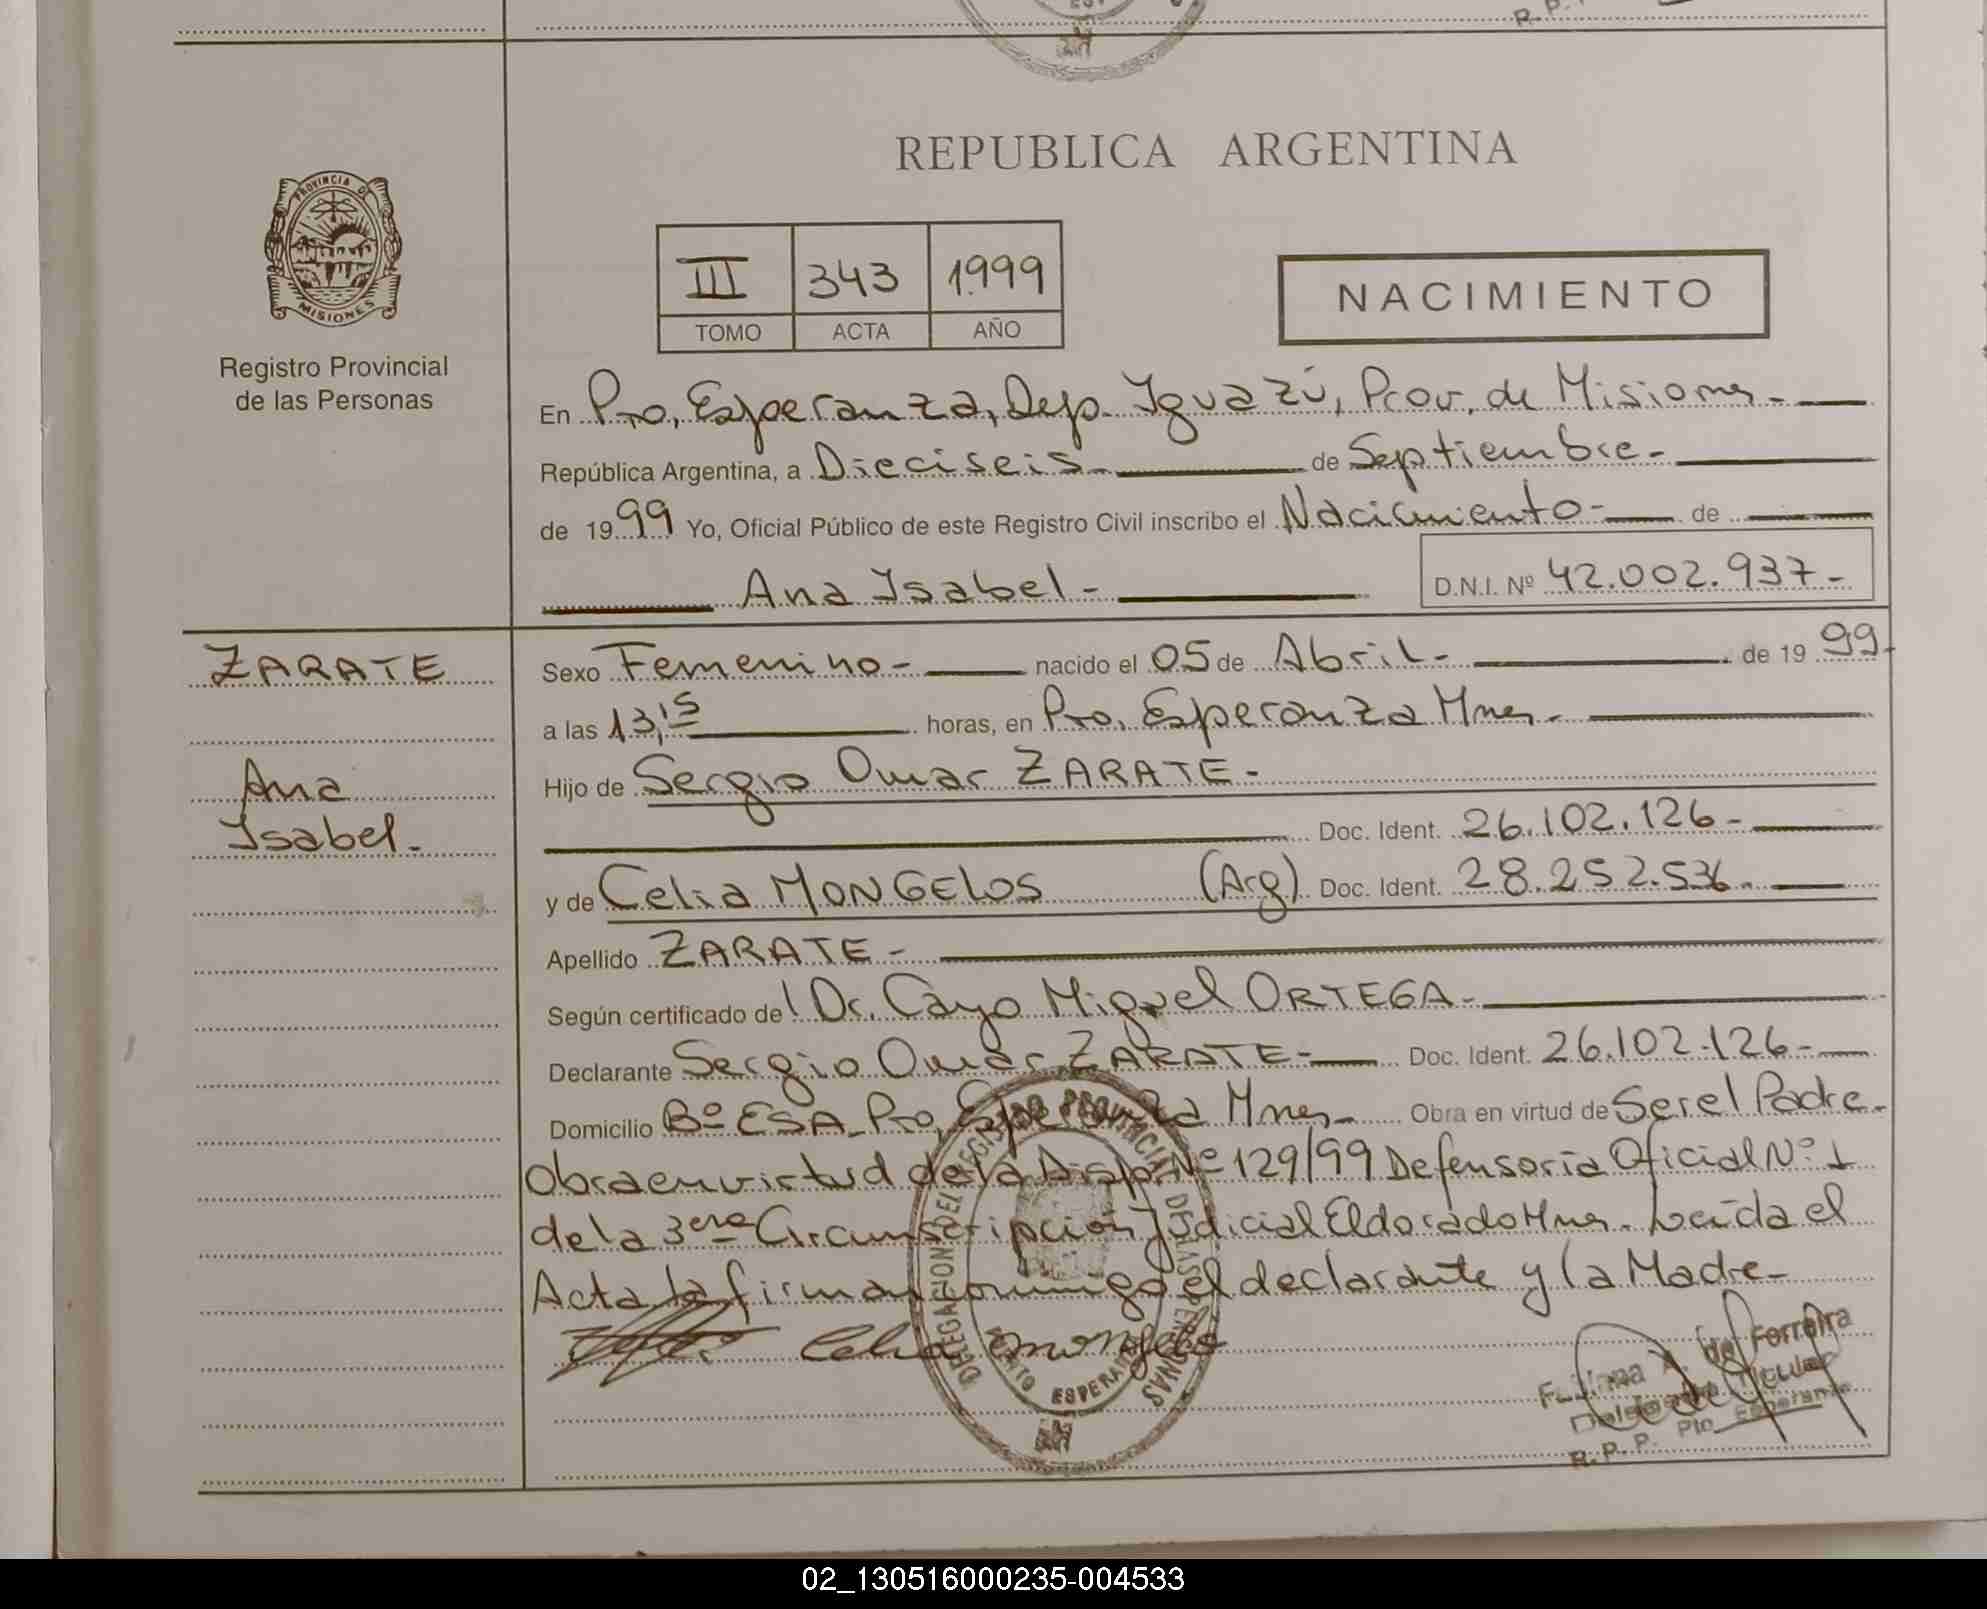 REPUBLICA ARGENTINA
PROVINCIA DE
MISIONES
Registro Provincial
de las Personas
III 343 1999
TOMO ACTA AÑO
NACIMIENTO
En Pto. Esperanza, Dep. Iguazú, Prov. de Misiones -
República Argentina, a Dieciseis - de Septiembre -
de 1999 Yo, Oficial Público de este Registro Civil inscribo el Nacimiento - de
Ana Isabel -
D.N.I. Nº 42.002.937 -
ZARATE
Ana
Isabel -
Sexo Femenino - nacido el 05 de Abril - de 1999 -
a las 13,15 horas, en Pto. Esperanza Mnes -
Hijo de Sergio Omar ZARATE -
Doc. Ident. 26.102.126 -
y de Celia MONGELOS (Arg) Doc. Ident. 28.252.536 -
Apellido ZARATE -
Según certificado de l Dr. Cayo Miguel ORTEGA -
Declarante Sergio Omar ZARATE - Doc. Ident. 26.102.126 -
Domicilio Bº ESA - Pto. Esperanza Mnes - Obra en virtud de Ser el Padre -
Obra en virtud de la Disp. Nº 129/99 Defensoría Oficial Nº 1
de la 3era Circunscripción Judicial Eldorado Mnes. Leída el
Acta la firman conmigo el declarante y la Madre -
Celia Mongelos
DELEGACION DEL REGISTRO PROVINCIAL DE LAS PERSONAS
PUERTO ESPERANZA
A. de Ferreira
Delegada Titular
R. P. P. Pto. Esperanza
02_130516000235-004533